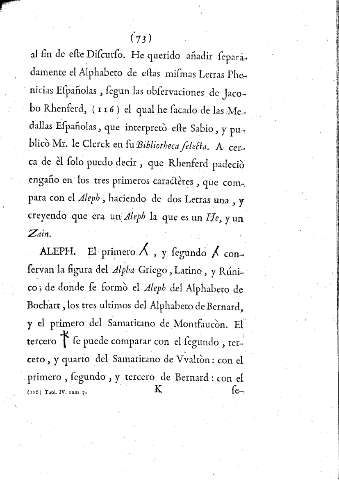 (73)
al fin de eſte Diſcurſo. He querido añadir ſepara-
damente el Alphabeto de eſtas miſmas Letras Phe-
nicias Eſpañolas, ſegun las obſervaciones de Jaco-
bo Rhenferd, (116) el qual he ſacado de las Me-
dallas Eſpañolas, que interpretò eſte Sabio, y pu-
blicò Mr. le Clerck en ſu Bibliotheca ſelecta. A cer-
ca de èl ſolo puedo decir, que Rhenferd padeciò
engaño en los tres primeros caractères, que com-
para con el Aleph, haciendo de dos Letras una, y
creyendo que era un Aleph la que es un He, y un
Zain.
ALEPH. El primero , y ſegundo con-
ſervan la figura del Alpha Griego, Latino, y Rúni-
co; de donde ſe formò el Aleph del Alphabeto de
Bochart, los tres ultimos del Alphabeto de Bernard,
y el primero del Samaritano de Montfaucòn. El
tercero ſe puede comparar con el ſegundo, ter-
cero, y quarto del Samaritano de Vvaltòn: con el
primero, ſegundo, y tercero de Bernard: con el
(116) Tabl. IV. num. 7. K ſe-